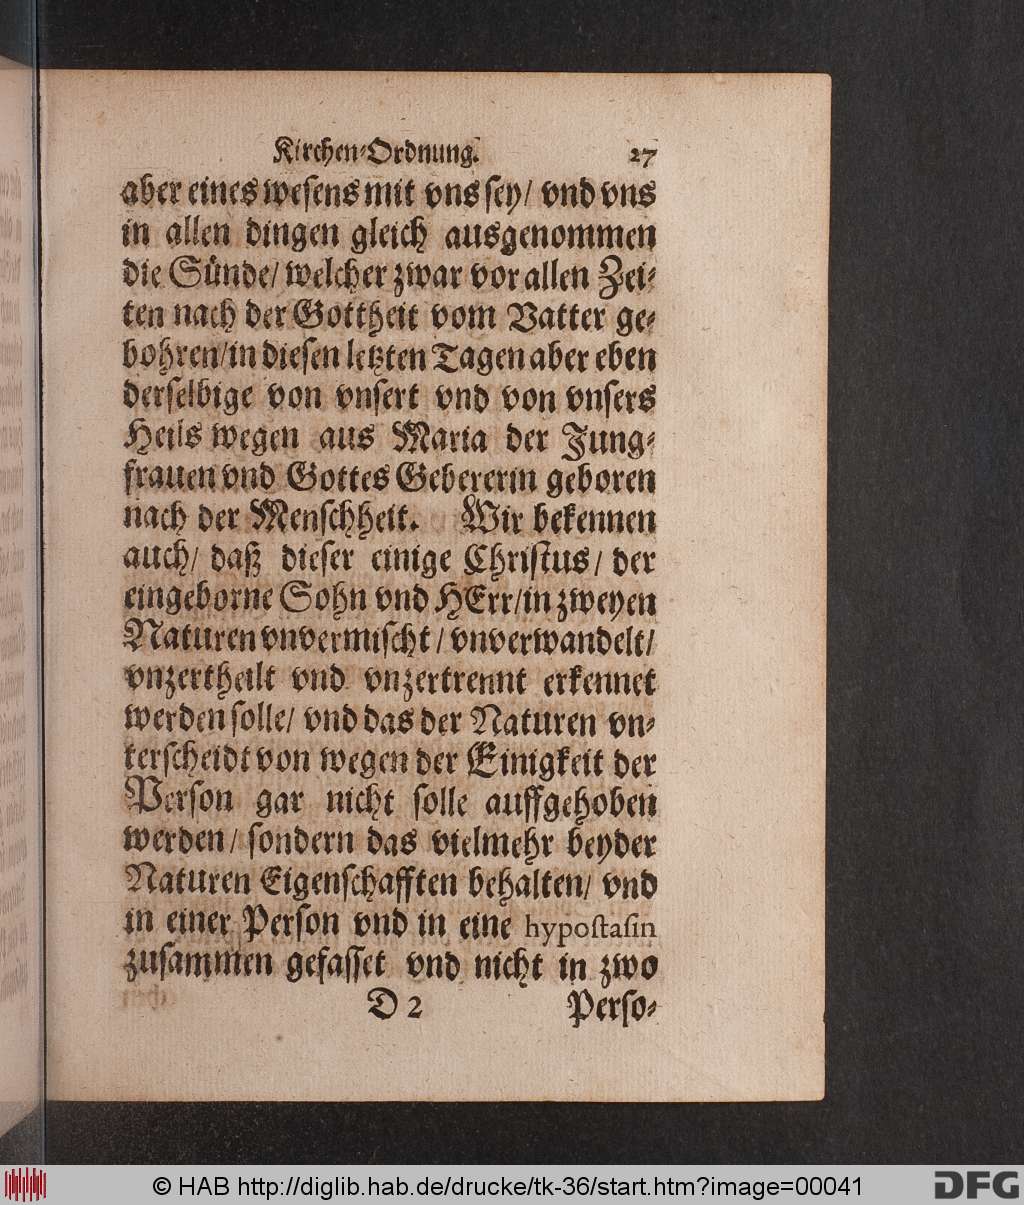 Kirchen-Ordnung. 27
aber eines wesens mit vns sey/ vnd vns
in allen dingen gleich ausgenommen
die Sünde/ welcher zwar vor allen Zei-
ten nach der Gottheit vom Vatter ge-
bohren/in diesen letzten Tagen aber eben
derselbige von vnsert vnd von vnsers
Heils wegen aus Maria der Jung-
frauen vnd Gottes Gebererin geboren
nach der Menschheit. Wir bekennen
auch/ daß dieser einige Christus/ der
eingeborne Sohn vnd HErr/in zweyen
Naturen vnvermischt/ vnverwandelt/
vnzertheilt vnd vnzertrennt erkennet
werden solle/ vnd das der Naturen vn-
terscheidt von wegen der Einigkeit der
Person gar nicht solle auffgehoben
werden/ sondern das vielmehr beyder
Naturen Eigenschafften behalten/ vnd
in einer Person vnd in eine hypostasin
zusammen gefasset vnd nicht in zwo
D 2 Perso-
© HAB http://diglib.hab.de/drucke/tk-36/start.htm?image=00041
DFG